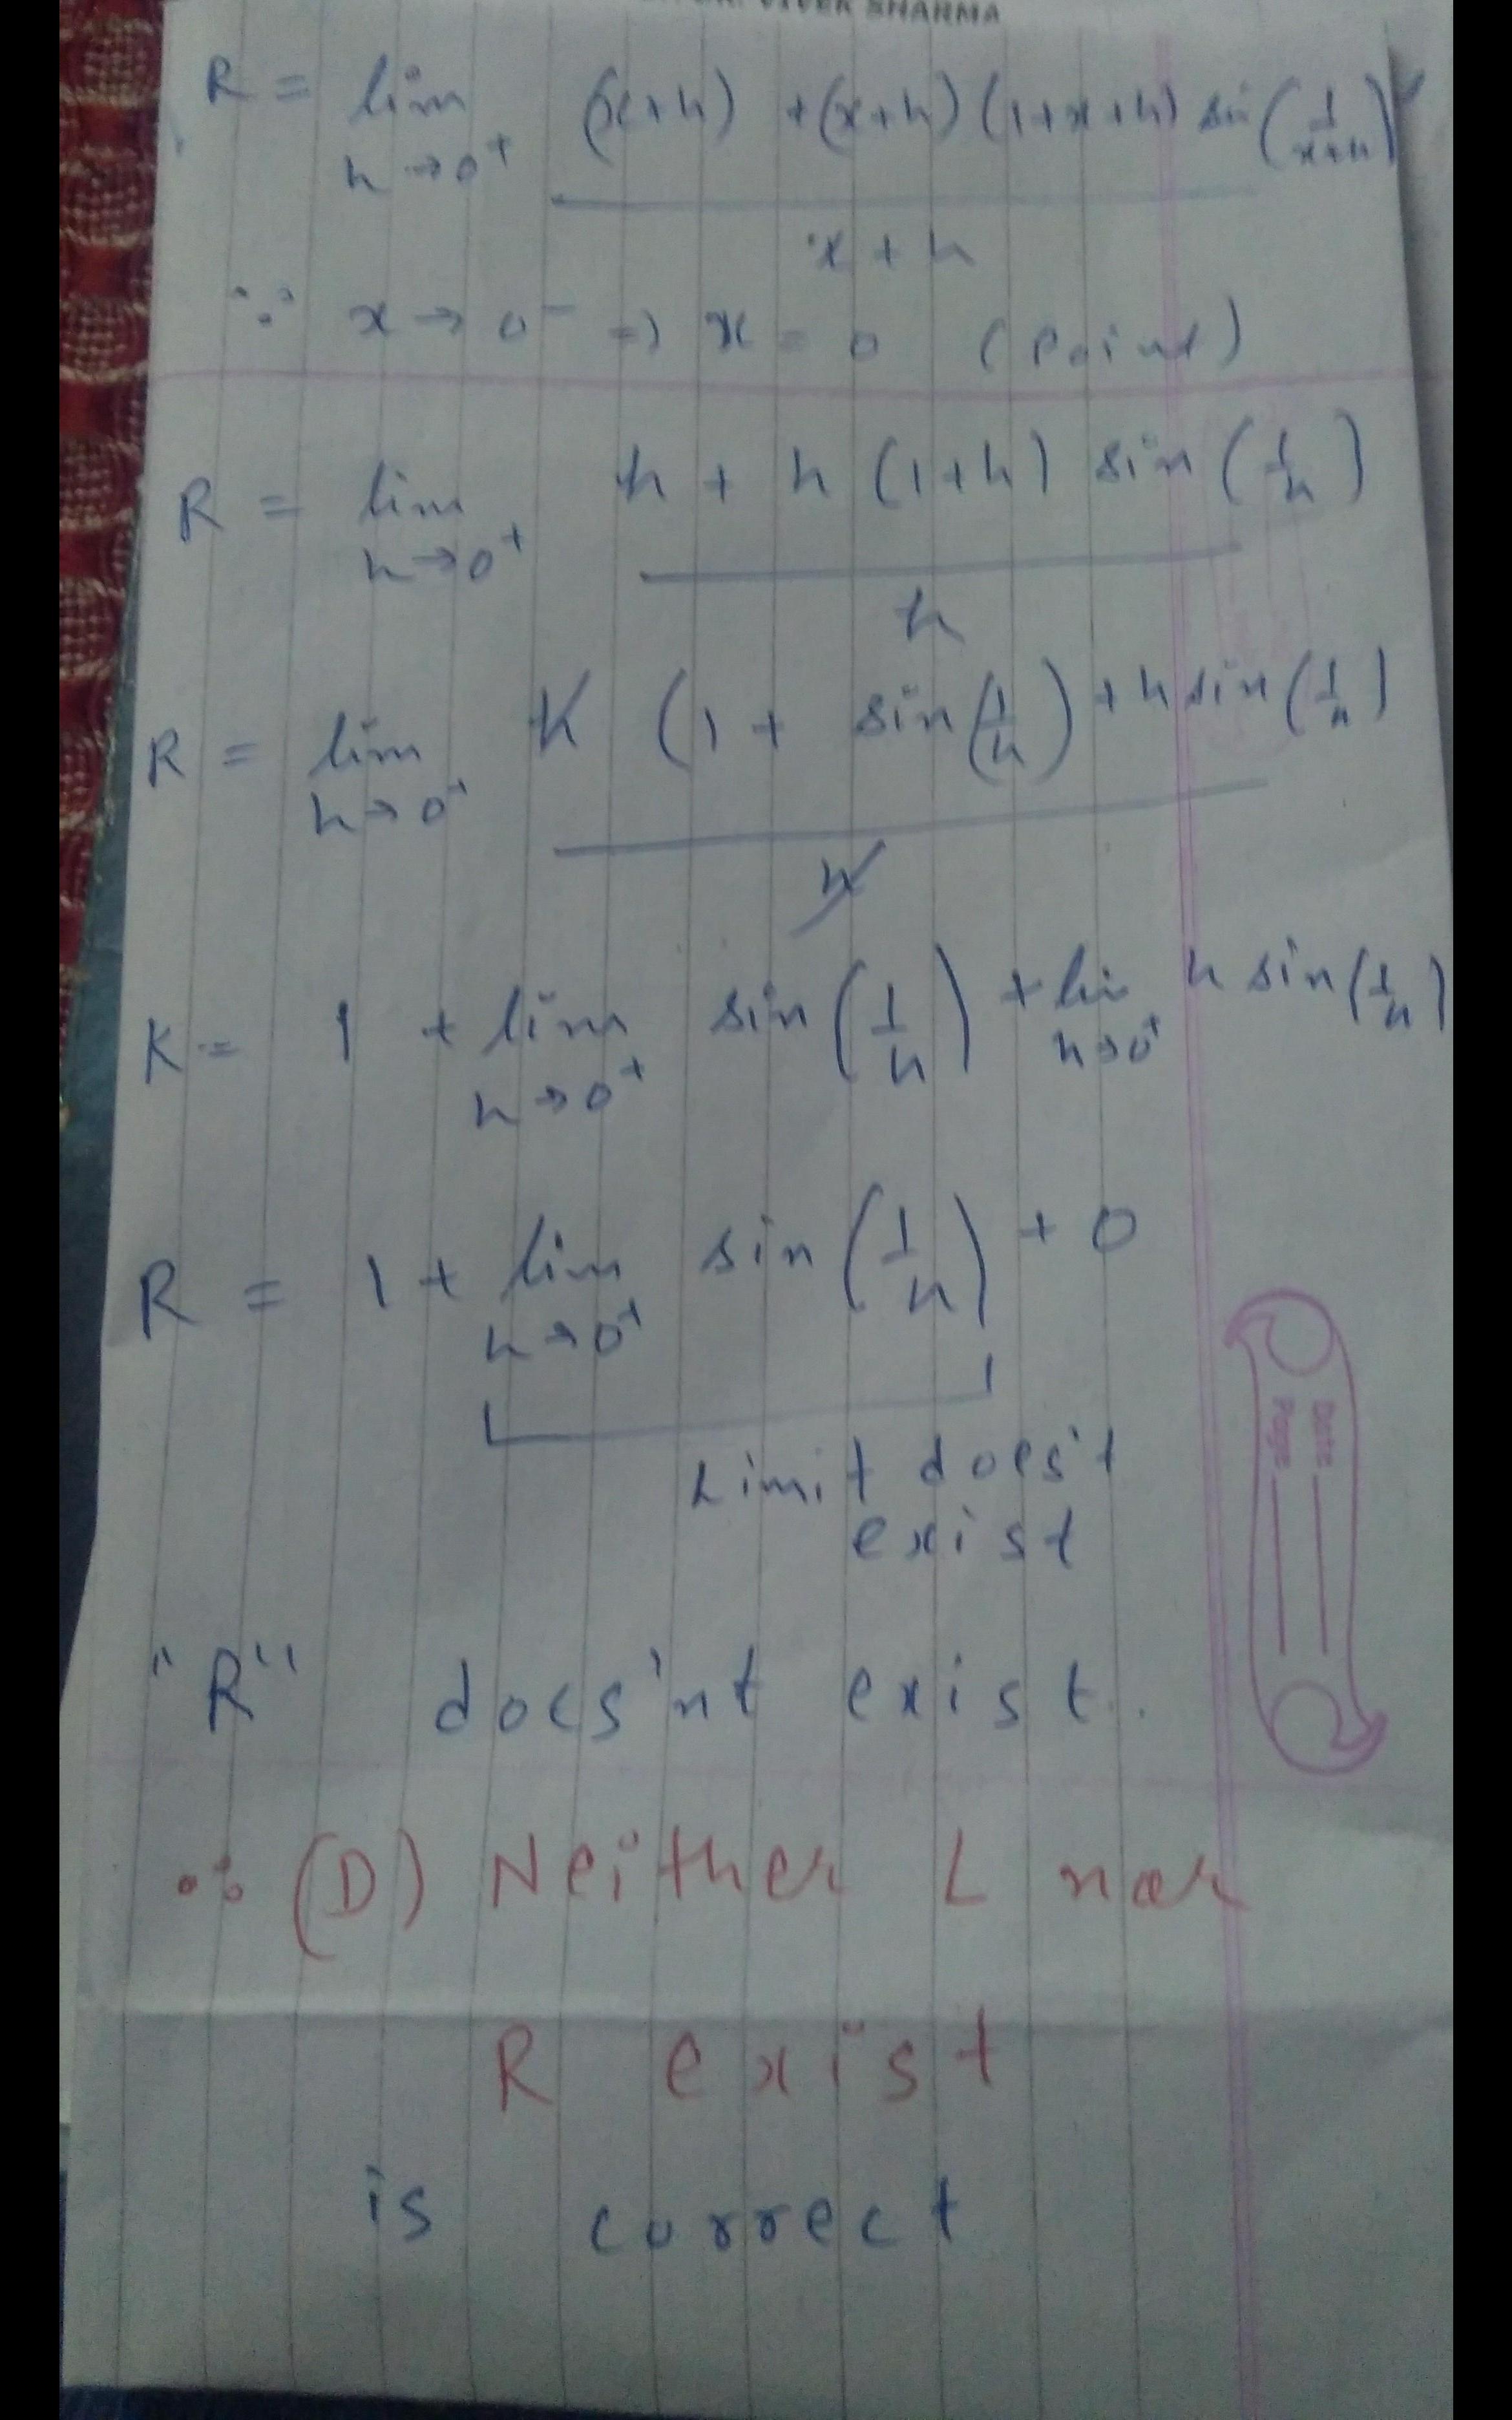 VIVEK SHARMA
R = lim h→0⁺ (x+h) + (x+h) (1+x+h) sin(1/x+h)
x + h
∵ x → 0⁻ ⇒ x = 0 (Point)
R = lim h→0⁺ h + h (1+h) sin(1/h)
h
R = lim h→0⁺ h (1 + sin(1/h) + h sin(1/h)
h
R = 1 + lim h→0⁺ sin(1/h) + li h→0⁺ h sin(1/h)
R = 1 + lim h→0⁺ sin(1/h) + 0
Limit does't
exist
"R" does'nt exist.
∴ (D) Neither L nor
R exist
is correct
Date
Page